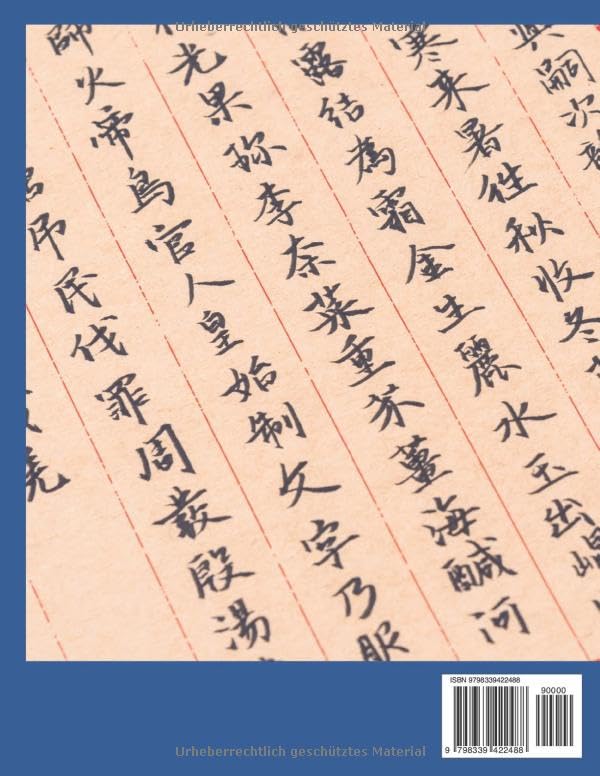 Urheberrechtlich geschütztes Material
興嗣次
寒來暑往秋收冬
露結為霜金生麗水玉出崑
光果珍李奈菜重芥薑海鹹河
師火帝鳥官人皇始制文字乃服
吊民伐罪周發殷湯
ISBN 9798339422488
90000
9 798339 422488
Urheberrechtlich geschütztes Material